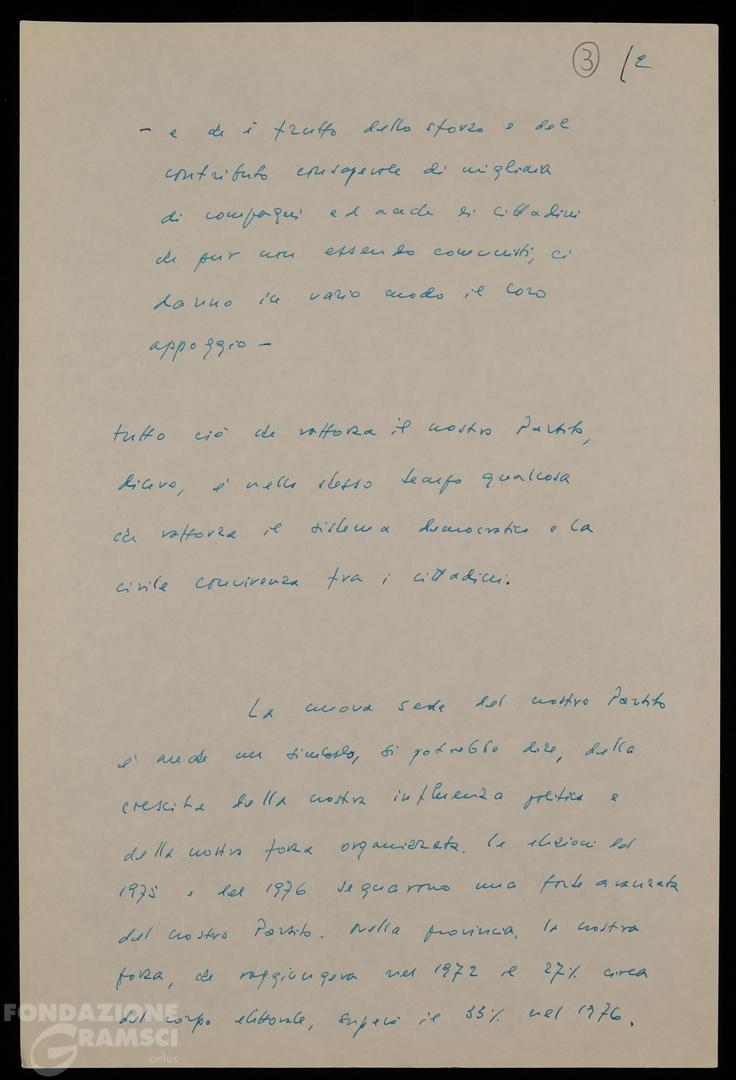 3 /2
- e che è frutto dello sforzo e del
contributo consapevole di migliaia
di compagni ed anche di cittadini
che pur non essendo comunisti, ci
danno in vario modo il loro
appoggio -
tutto ciò che rafforza il nostro Partito,
dicevo, è nello stesso tempo qualcosa
che rafforza il sistema democratico e la
civile convivenza fra i cittadini.
La nuova sede del nostro Partito
è anche un simbolo, si potrebbe dire, della
crescita della nostra influenza politica e
della nostra forza organizzata. Le elezioni del
1975 e del 1976 segnarono una forte avanzata
del nostro Partito. Nella provincia, la nostra
forza, che raggiungeva nel 1972 il 27% circa
del corpo elettorale, superò il 33% nel 1976.
FONDAZIONE
GRAMSCI
onlus